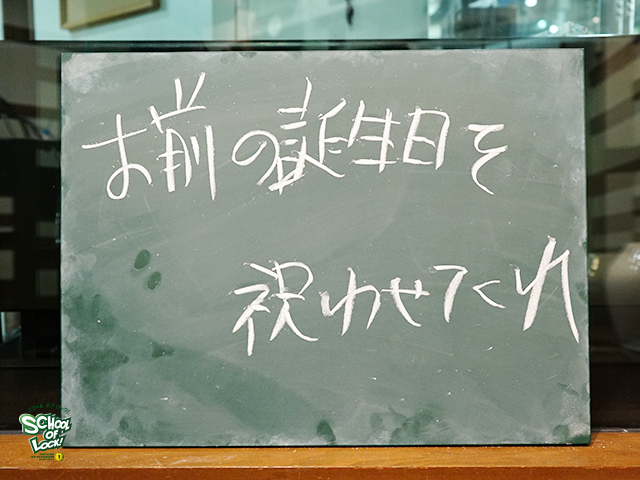 お前の誕生日を
祝わせてくれ
SCHOOL
OF
LOCK!